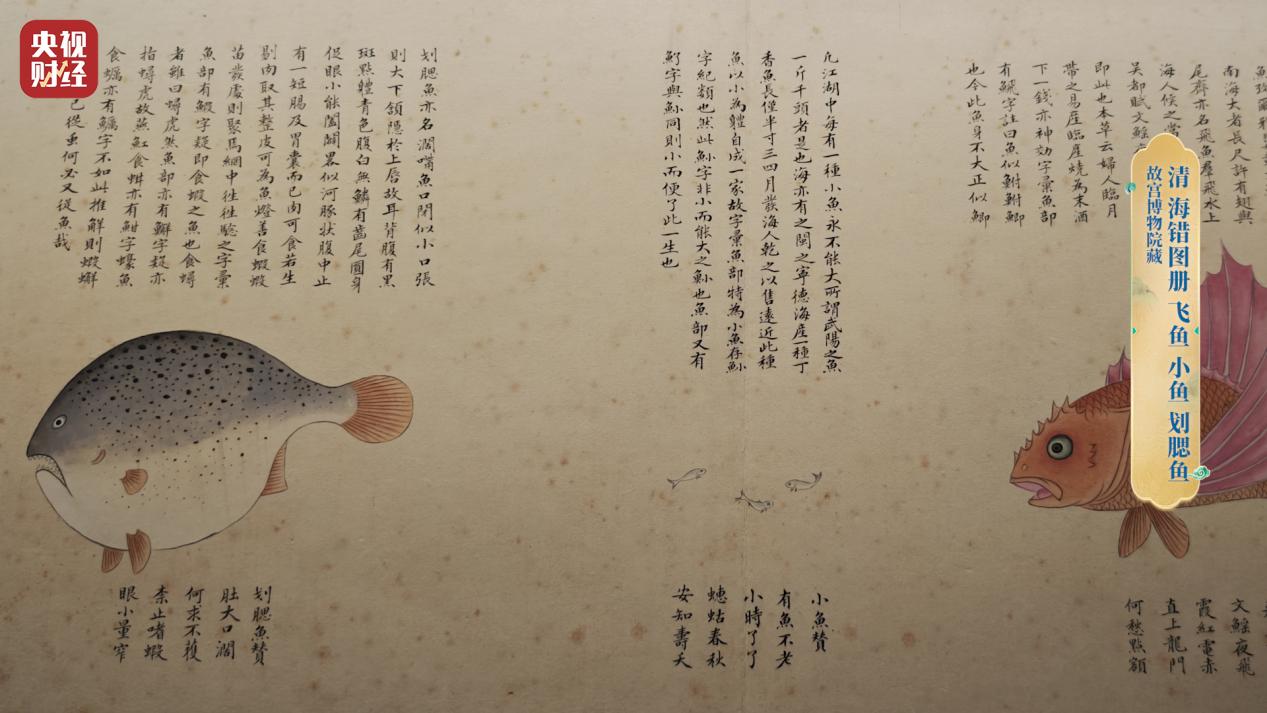 央视
财经
清 海错图册 飞鱼 小鱼 划腮鱼
故宫博物院藏
尾齊亦名飛魚羣飛水上
海人候之當
吳都賦文鰩
即此也本草云婦人臨月
帶之易產臨產燒為末酒
下一錢亦神効字彙魚部
有䱀字註曰魚似鮒鮒鯽
也今此魚身不大正似鯽
文鰩夜飛
霞紅電赤
直上龍門
何愁點額
凡江湖中每有一種小魚永不能大所謂武陽之魚
一斤千頭者是也海亦有之閩之寧德海產一種丁
香魚長僅半寸三四月發海人乾之以售遠近此種
魚以小為體自成一家故字彙魚部特為小魚存鯋
字紀類也然此字非小而能大之也魚部又有
字與同則小而便了此一生也
小魚贊
有魚不老
小時了了
蟪蛄春秋
安知壽夭
划腮魚亦名濶嘴魚口閉似小口張
則大下頷隱於上唇故耳背腹有黑
斑點體青色腹白無鱗有齒尾圓身
促眼小能闔闢畧似河豚狀腹中止
有一短腸及胃囊而已肉可食若生
剔肉取其整皮可為魚燈善食蝦蝦
苗發處則聚焉網中徃徃騐之字彙
魚部有鰕字疑即食蝦之魚也食蟳
者雖曰蟳虎然魚部亦有字疑亦
指蟳虎故燕魟食蚶亦有魽字蠔魚
食蠣亦有字不如此推解則蝦蠏
已從虫何必又從魚哉
划腮魚贊
肚大口濶
何求不獲
柰止嗜蝦
眼小量窄